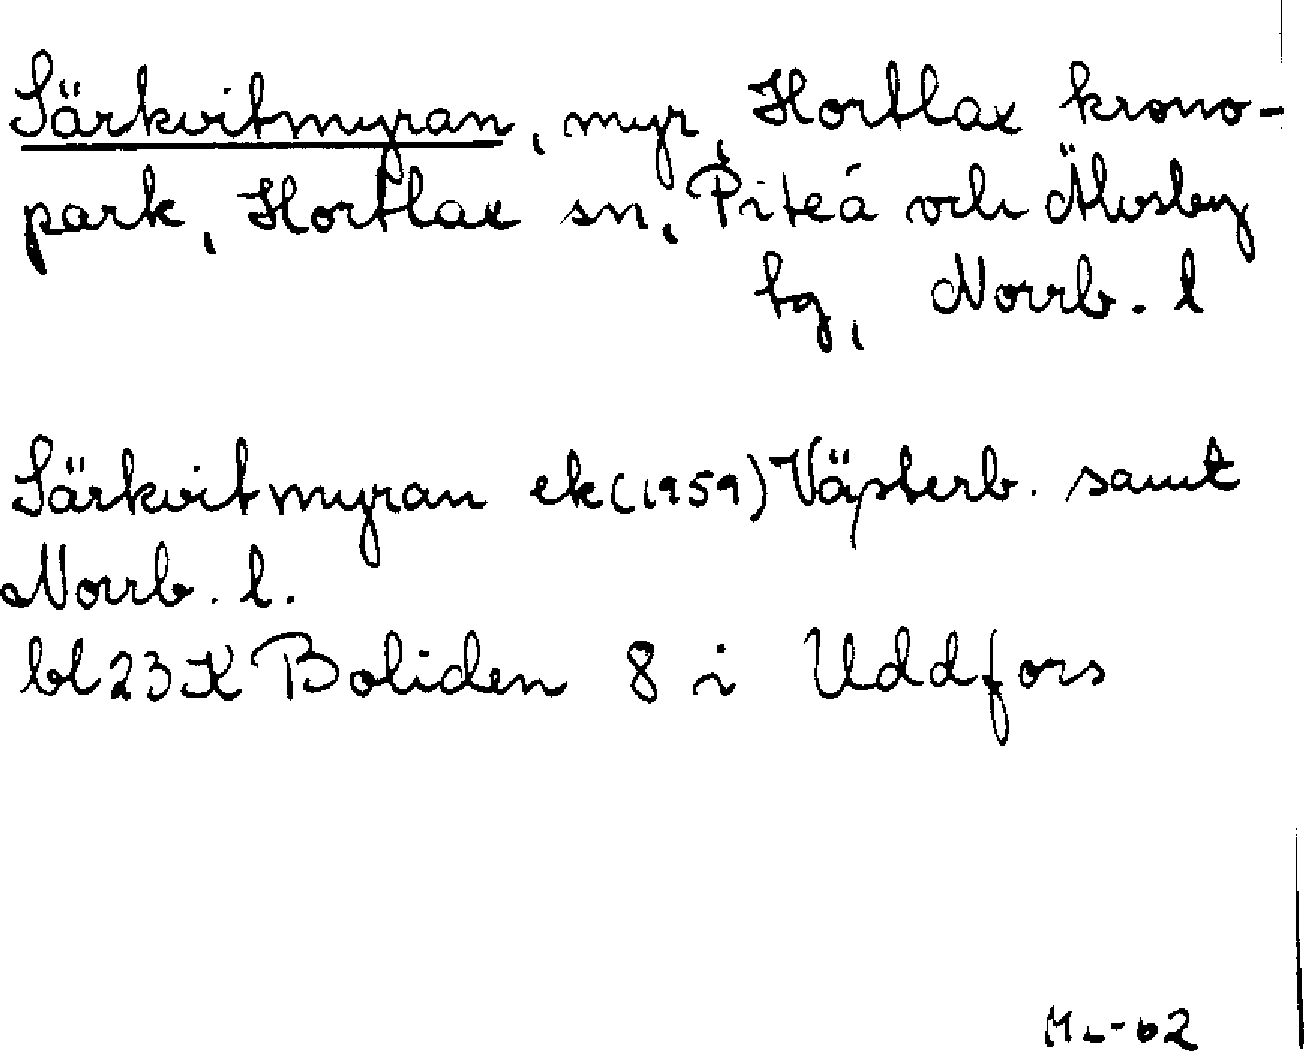 Särkvitmyran, myr, Hortlax krono-
park, Hortlax sn, Piteå och Älvsby
tg, Norrb. l
Särkvitmyran ek (1959) Västerb. samt
Norrb. l.
bl 23 K Boliden 8 i Uddfors